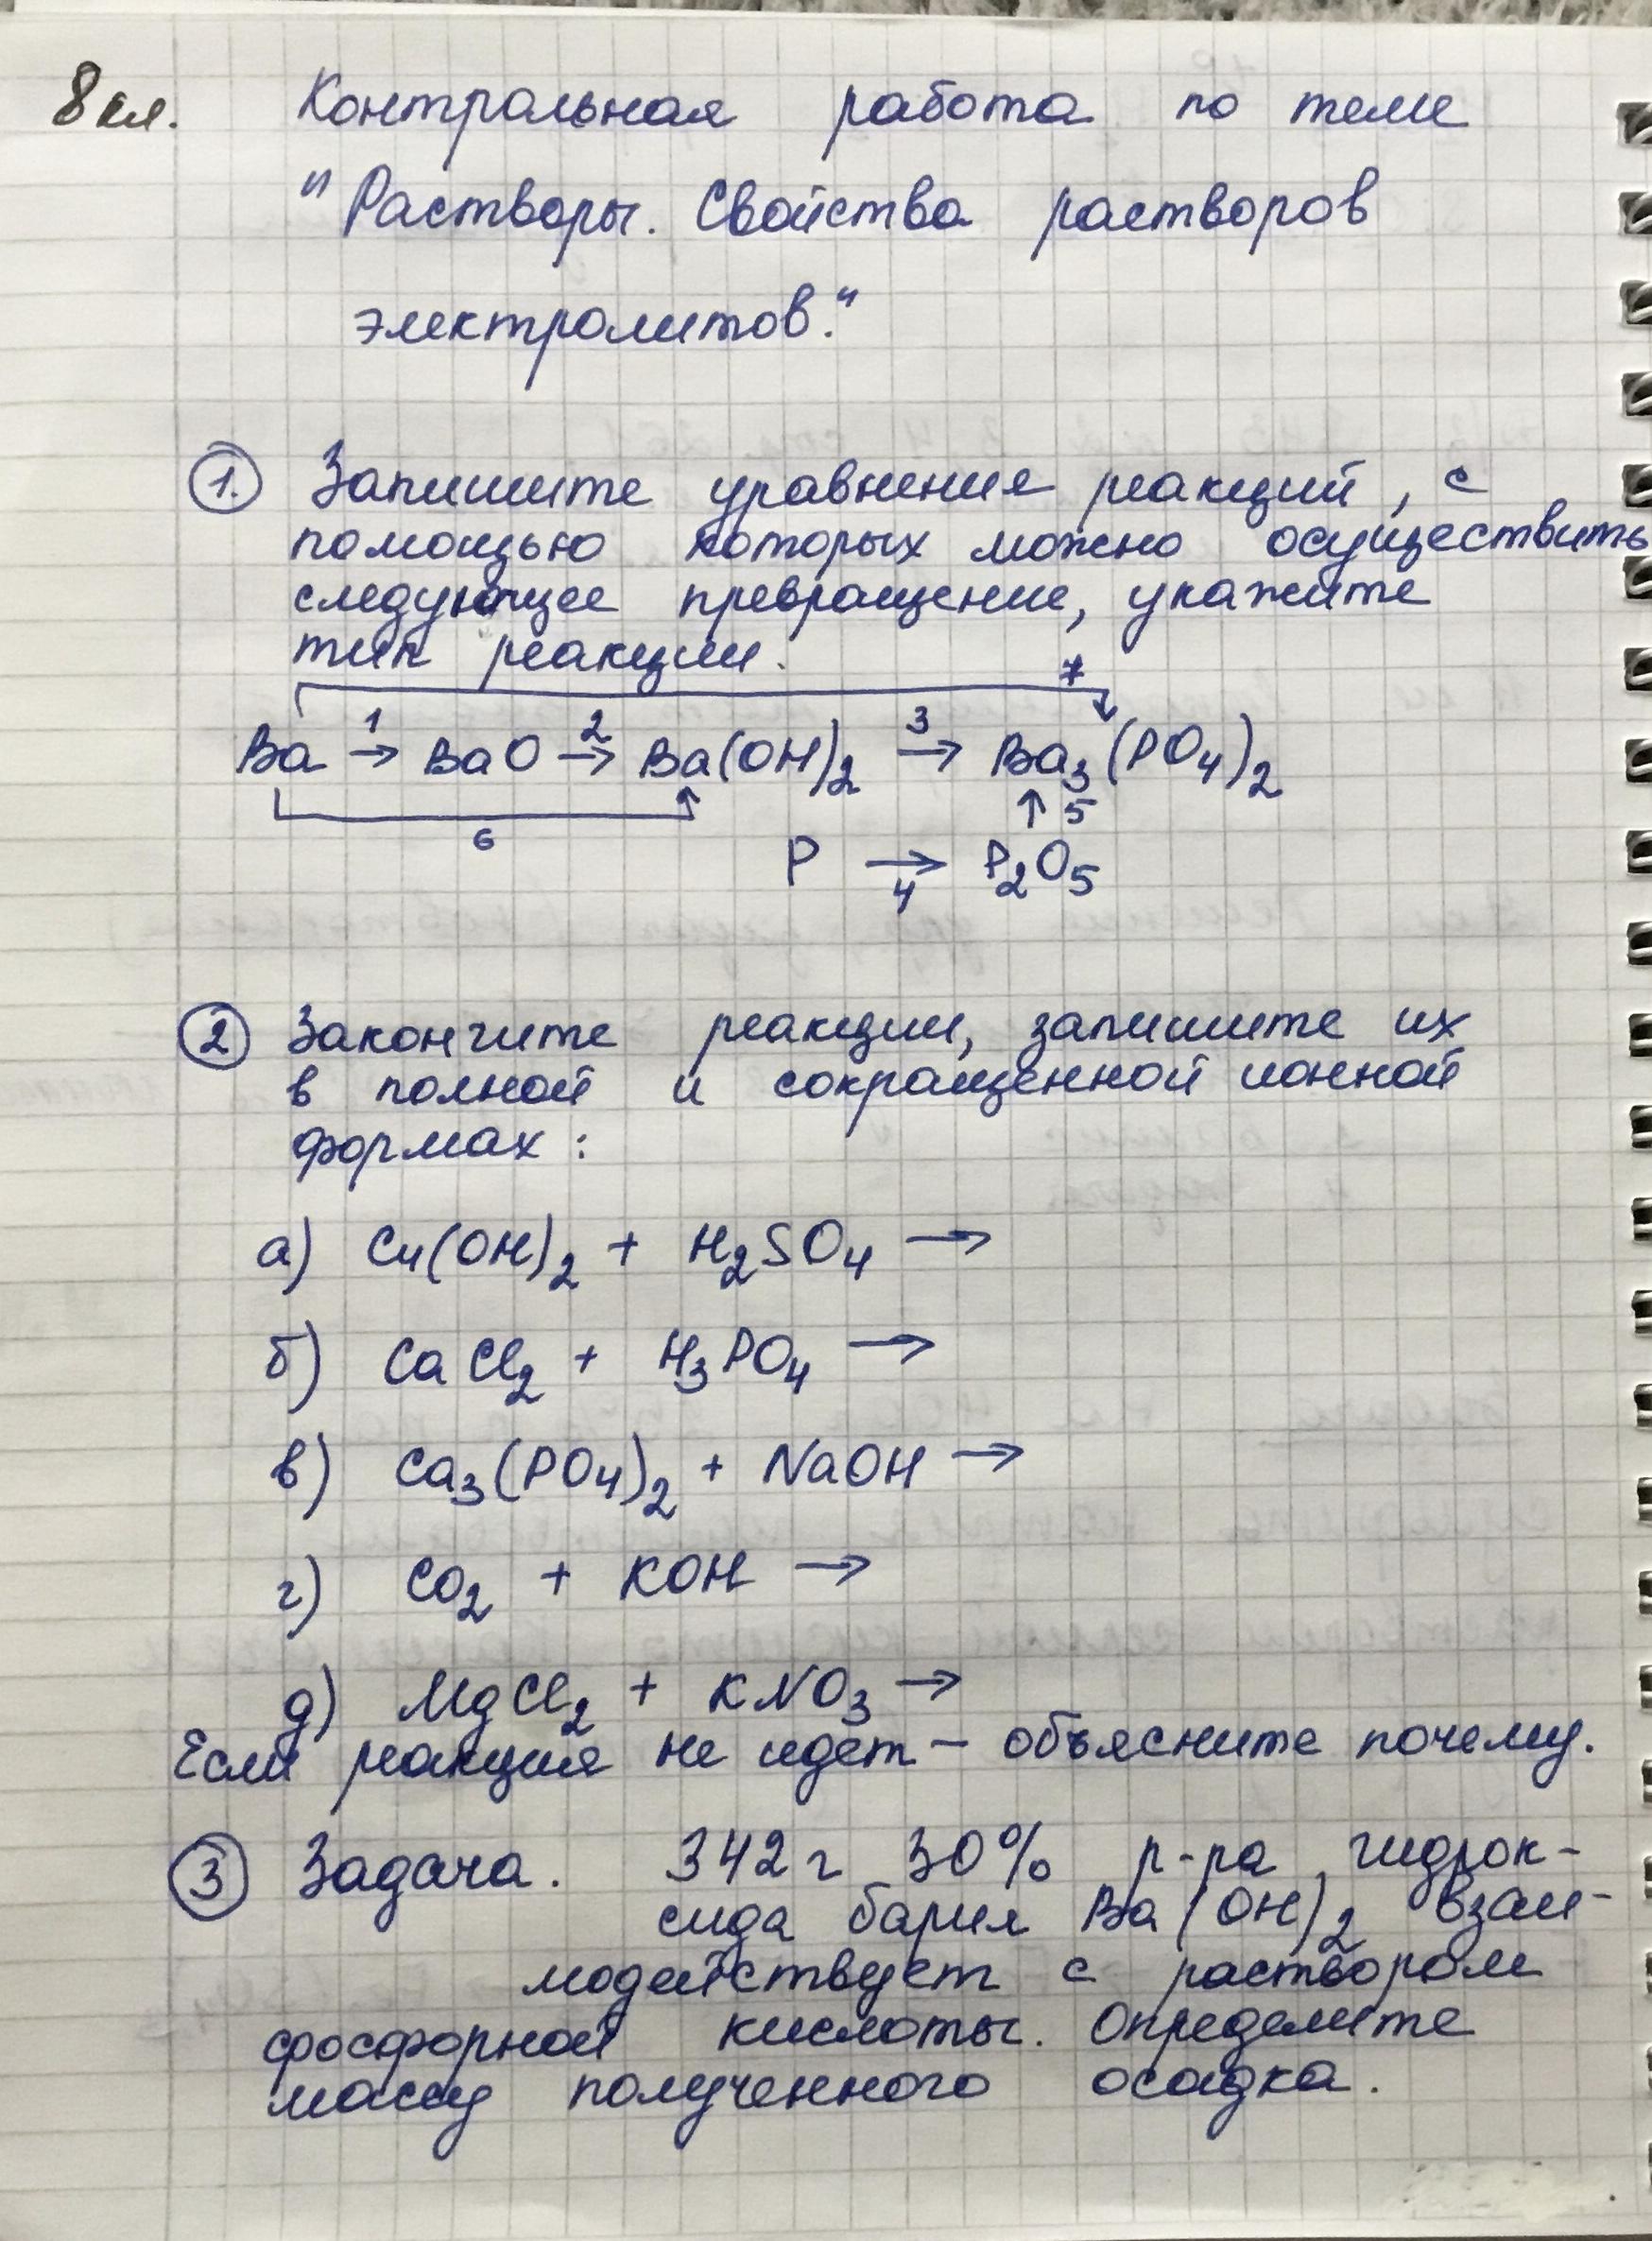 8 кл. Контрольная работа по теме
"Растворы. Свойства растворов
электролитов."
1. Запишите уравнение реакций, с
помощью которых можно осуществить
следующее превращение, укажите
тип реакции.
7
Ba 1→ BaO 2→ Ba(OH)₂ 3→ Ba₃(PO₄)₂
6 ↑ 5
P →4 P₂O₅
2 Закончите реакции, запишите их
в полной и сокращенной ионной
формах :
а) Cu(OH)₂ + H₂SO₄ →
б) CaCl₂ + H₃PO₄ →
в) Ca₃(PO₄)₂ + NaOH →
г) CO₂ + KOH →
д) MgCl₂ + KNO₃ →
Если реакция не идет – объясните почему.
3 Задача. 342 г 30% р-ра гидрок-
сида бария Ba(OH)₂ взаи-
модействует с раствором
фосфорной кислоты. Определите
массу полученного осадка.